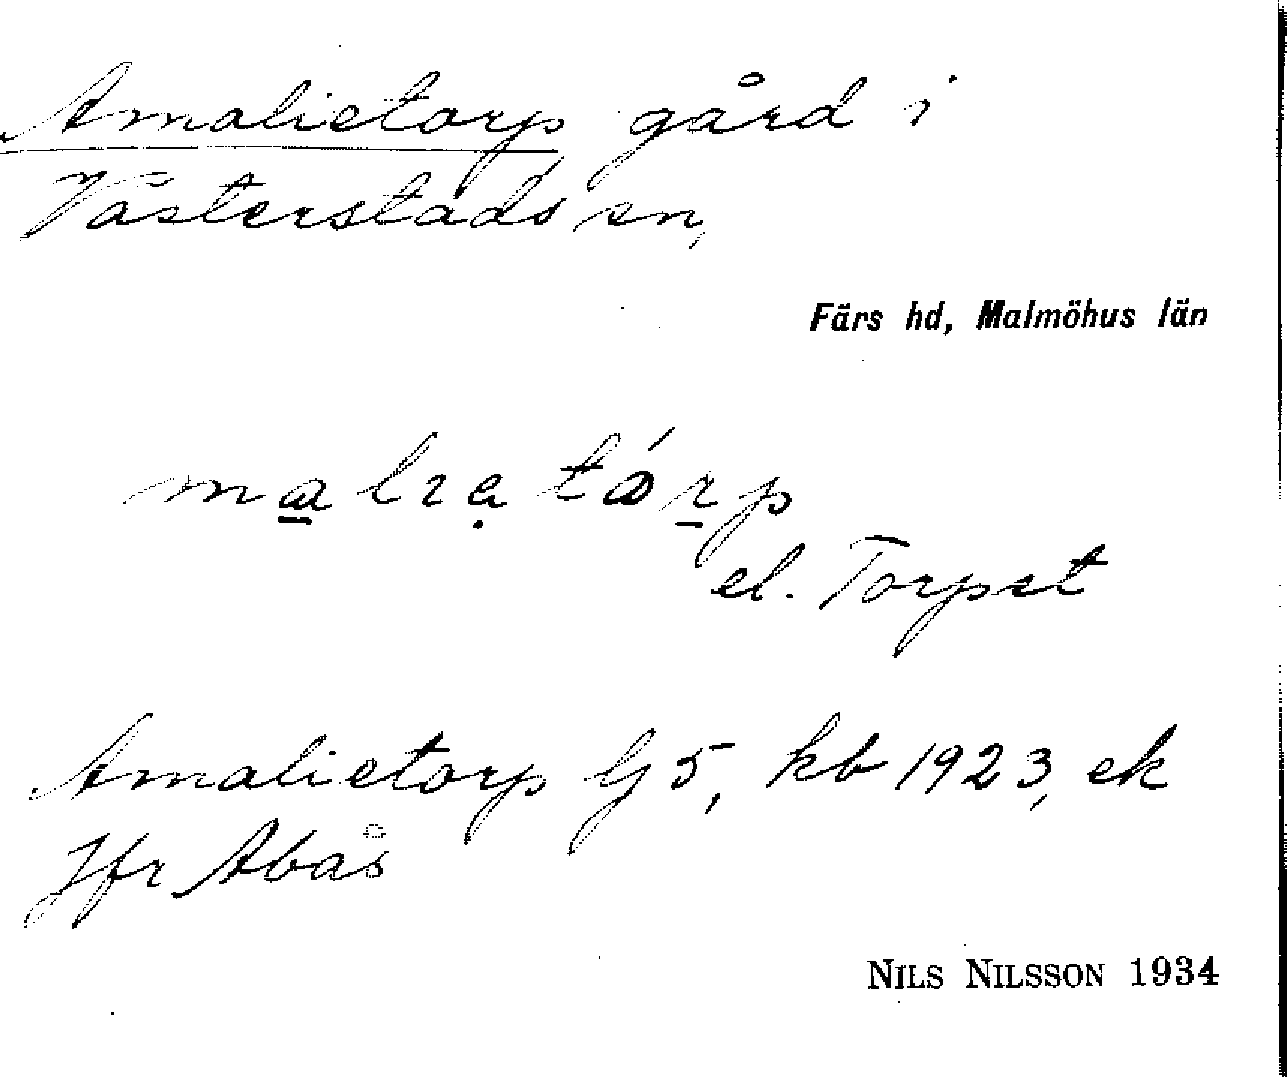 Amalietorp gård i
Västerstads sn,
Färs hd, Malmöhus län
malıa tórp
el. Torpet
Amalietorp G 5, kb 1923, ek
Jfr Abås
NILS NILSSON 1934